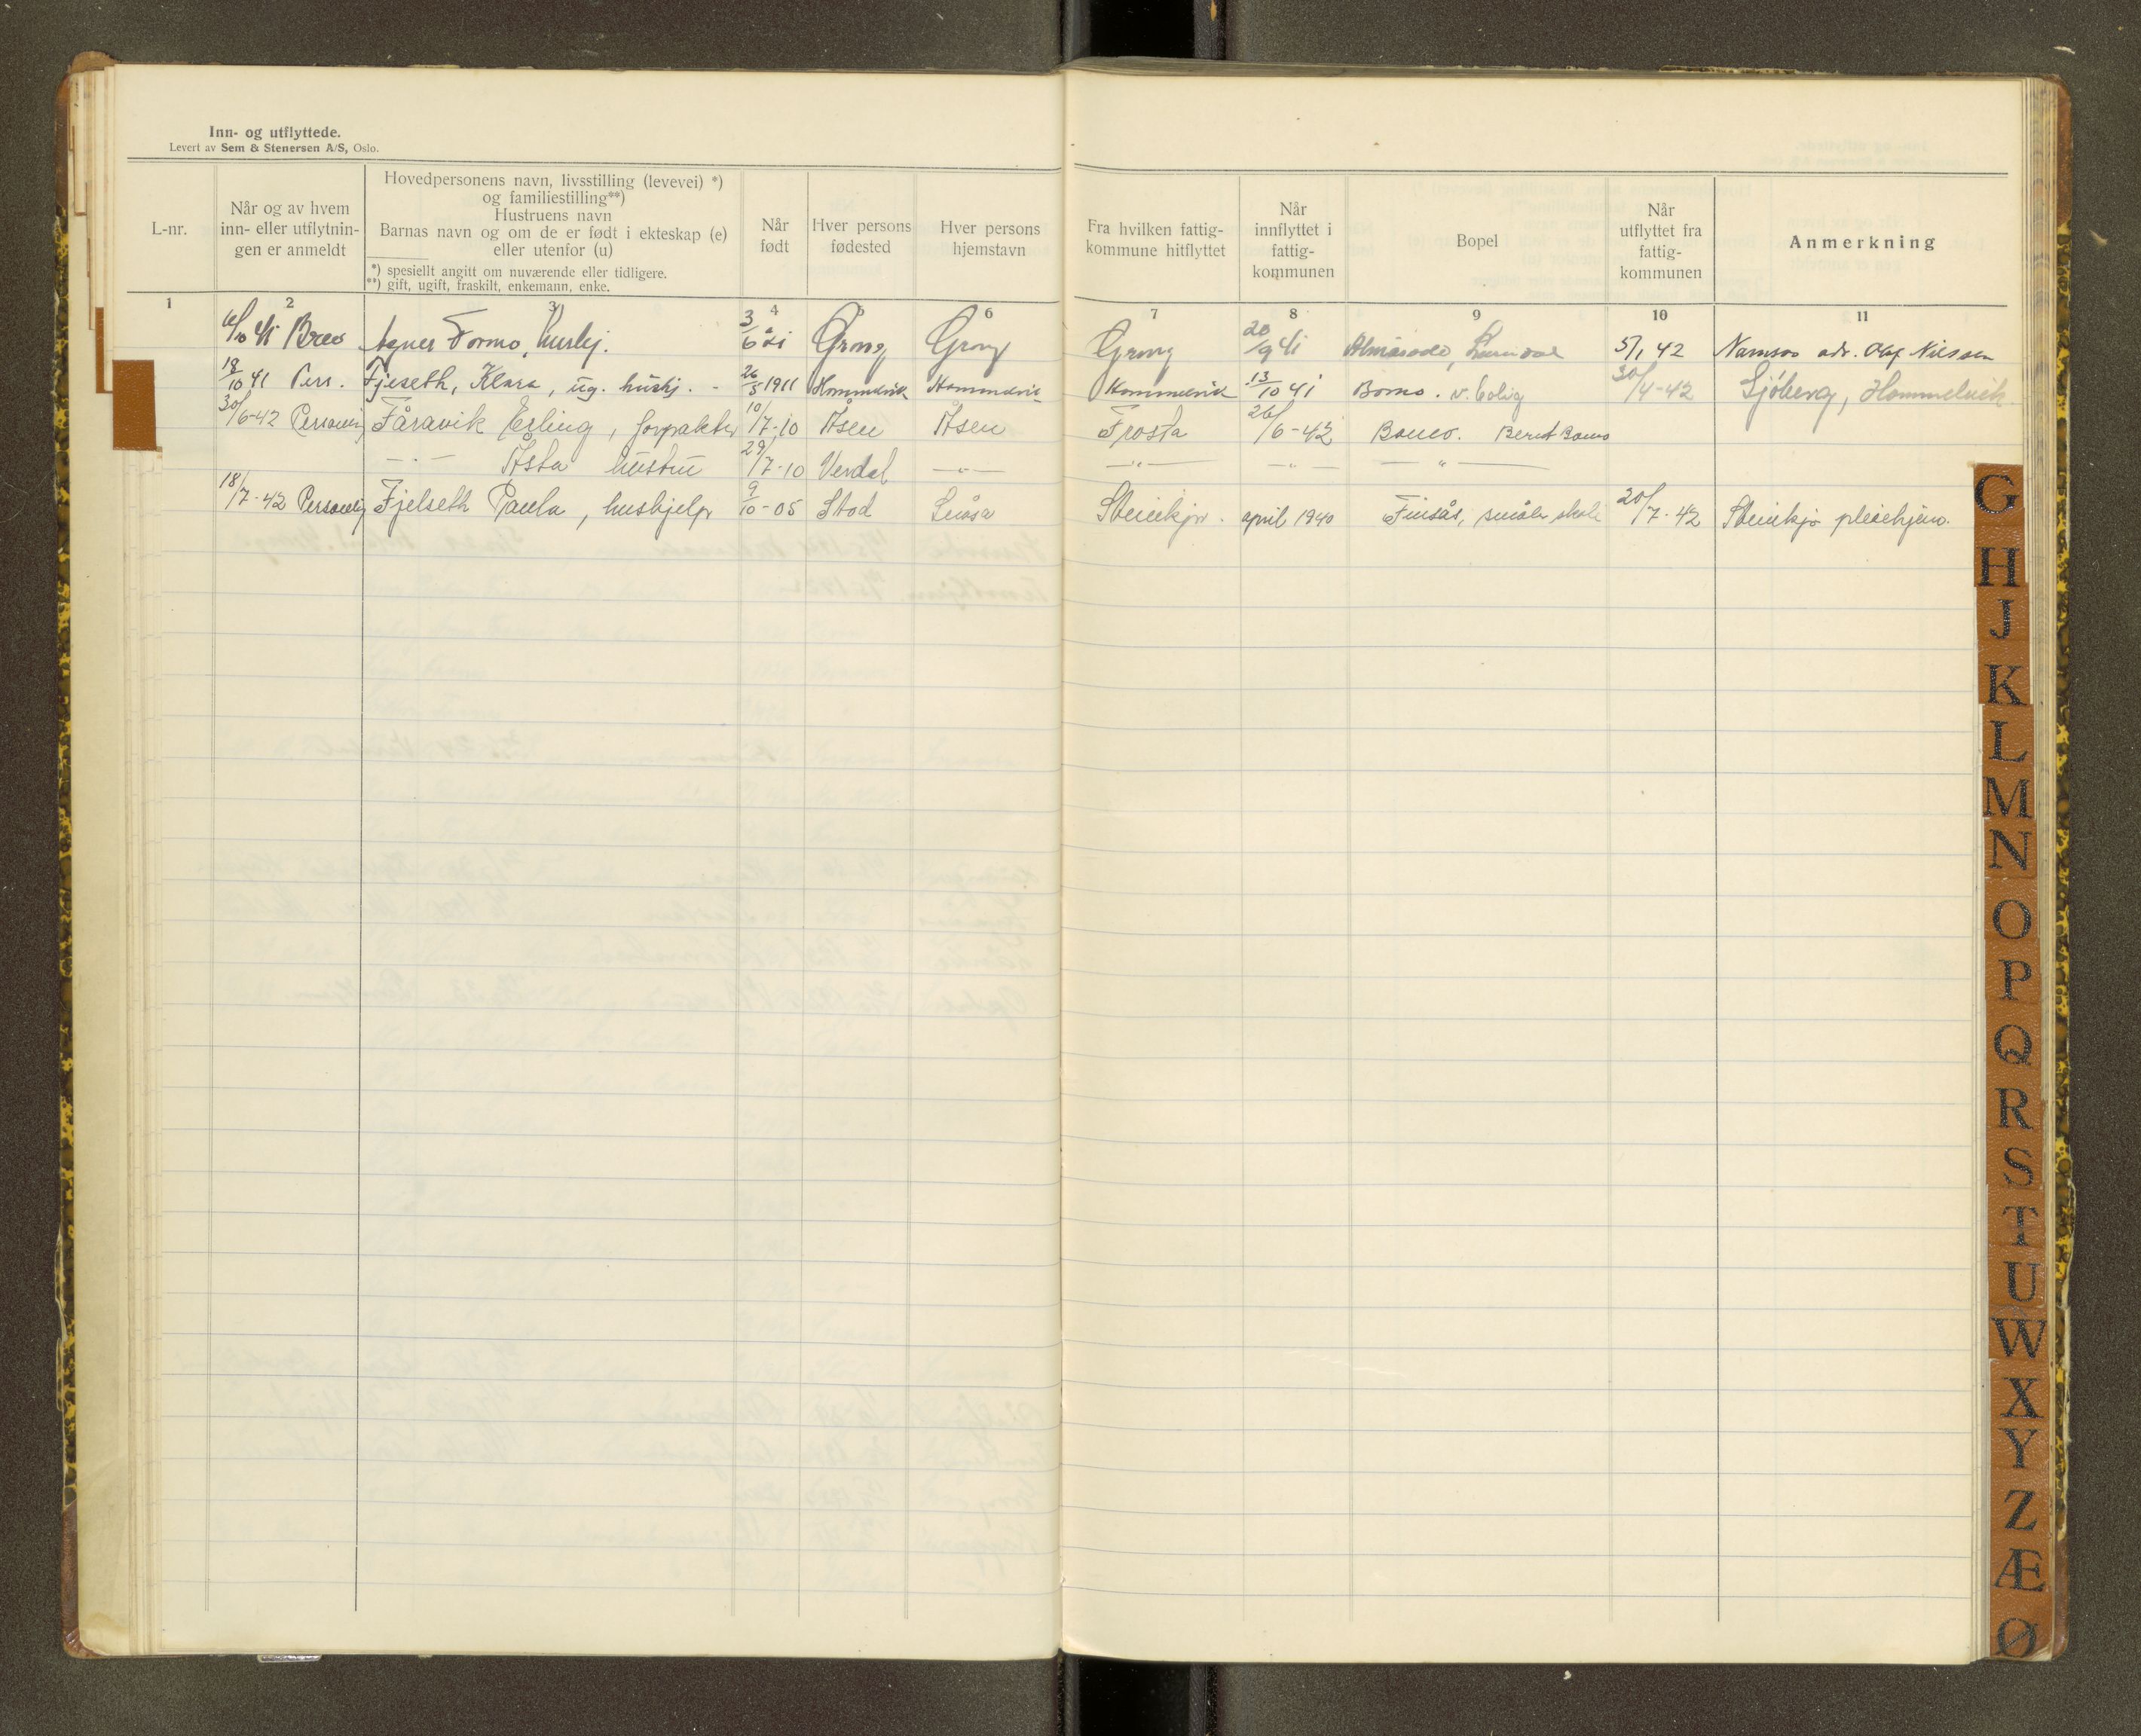 Inn- og utflyttede.
Levert av Sem & Stenersen A/S, Oslo.
L-nr.
Når og av hvem
inn- eller utflytnin-
gen er anmeldt
Hovedpersonens navn, livsstilling (levevei) *)
og familiestilling**)
Hustruens navn
Barnas navn og om de er født i ekteskap (e)
eller utenfor (u)
*) spesiellt angitt om nuværende eller tidligere.
**) gift, ugift, fraskilt, enkemann, enke.
Når
født
Hver persons
fødested
Hver persons
hjemstavn
Fra hvilken fattig-
kommune hitflyttet
Når
innflyttet i
fattig-
kommunen
Bopel
Når
utflyttet fra
fattig-
kommunen
Anmerkning
1 2 3 4 6 7 8 9 10 11
41 Brev Agnes Formo, hushj. 3/6 21 Grong Grong Grong 20/9 41 5/1 42 Namsos adr. Olaf Nilssen
18/10 41 Pers. Fjeseth, Klara, ug. hushj. - 26/5 1911 Hommelvik Hommelvik Hommelvik 13/10 41 Bomo. v. bolig 30/4-42 Sjøberg, Hommelvik
30/6-42 Personlig Fåravik Erling, forpakter 10/7-10 Åsen Åsen Frosta 26/6-42 Bomo. Bernt Bomo
— " — Åsta hustru 29/7-10 Verdal — " — — " — — " — — " —
18/7-42 Personlig Fjelseth Paula, hushjelp 9/10-05 Stod Snåsa Steinkjer. april 1940 Finsås, småbr. skole 20/7-42 Steinkjer pleiehjem.
G
H
J
K
L
M
N
O
P
Q
R
S
T
U
W
X
Y
Z
Æ
Ø